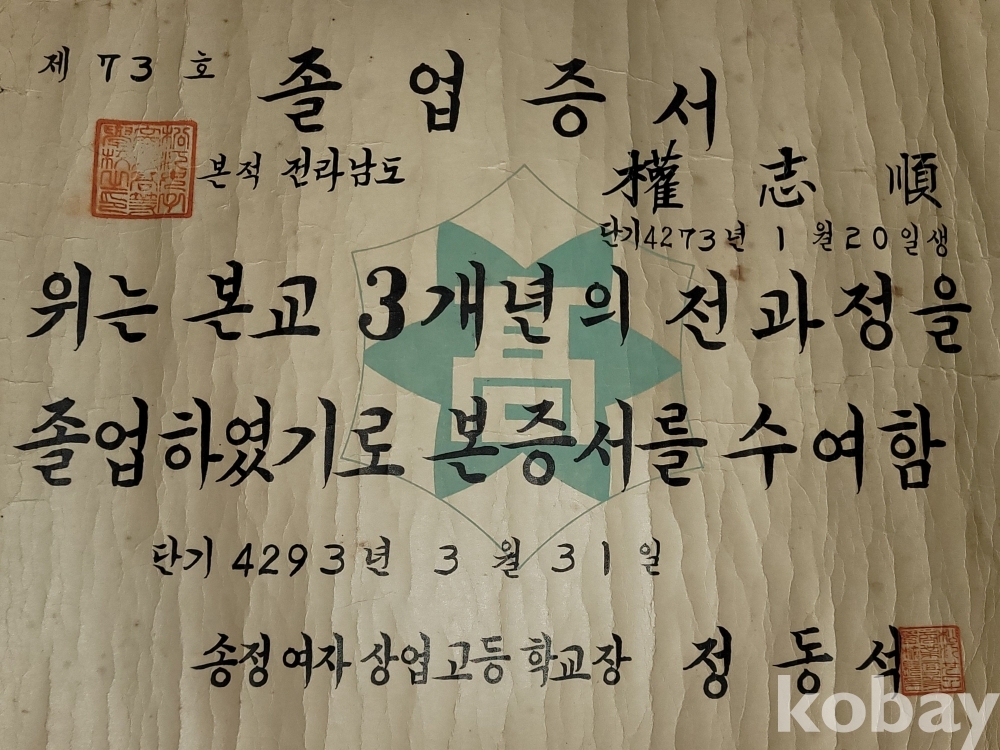 제 73 호
졸업증서
본적 전라남도
權志順
단기4273년 1월20일생
위는 본교 3개년의 전과정을
졸업하였기로 본증서를 수여함
단기 4293년 3월 31일
송정여자상업고등학교장 정동석
高
kobay